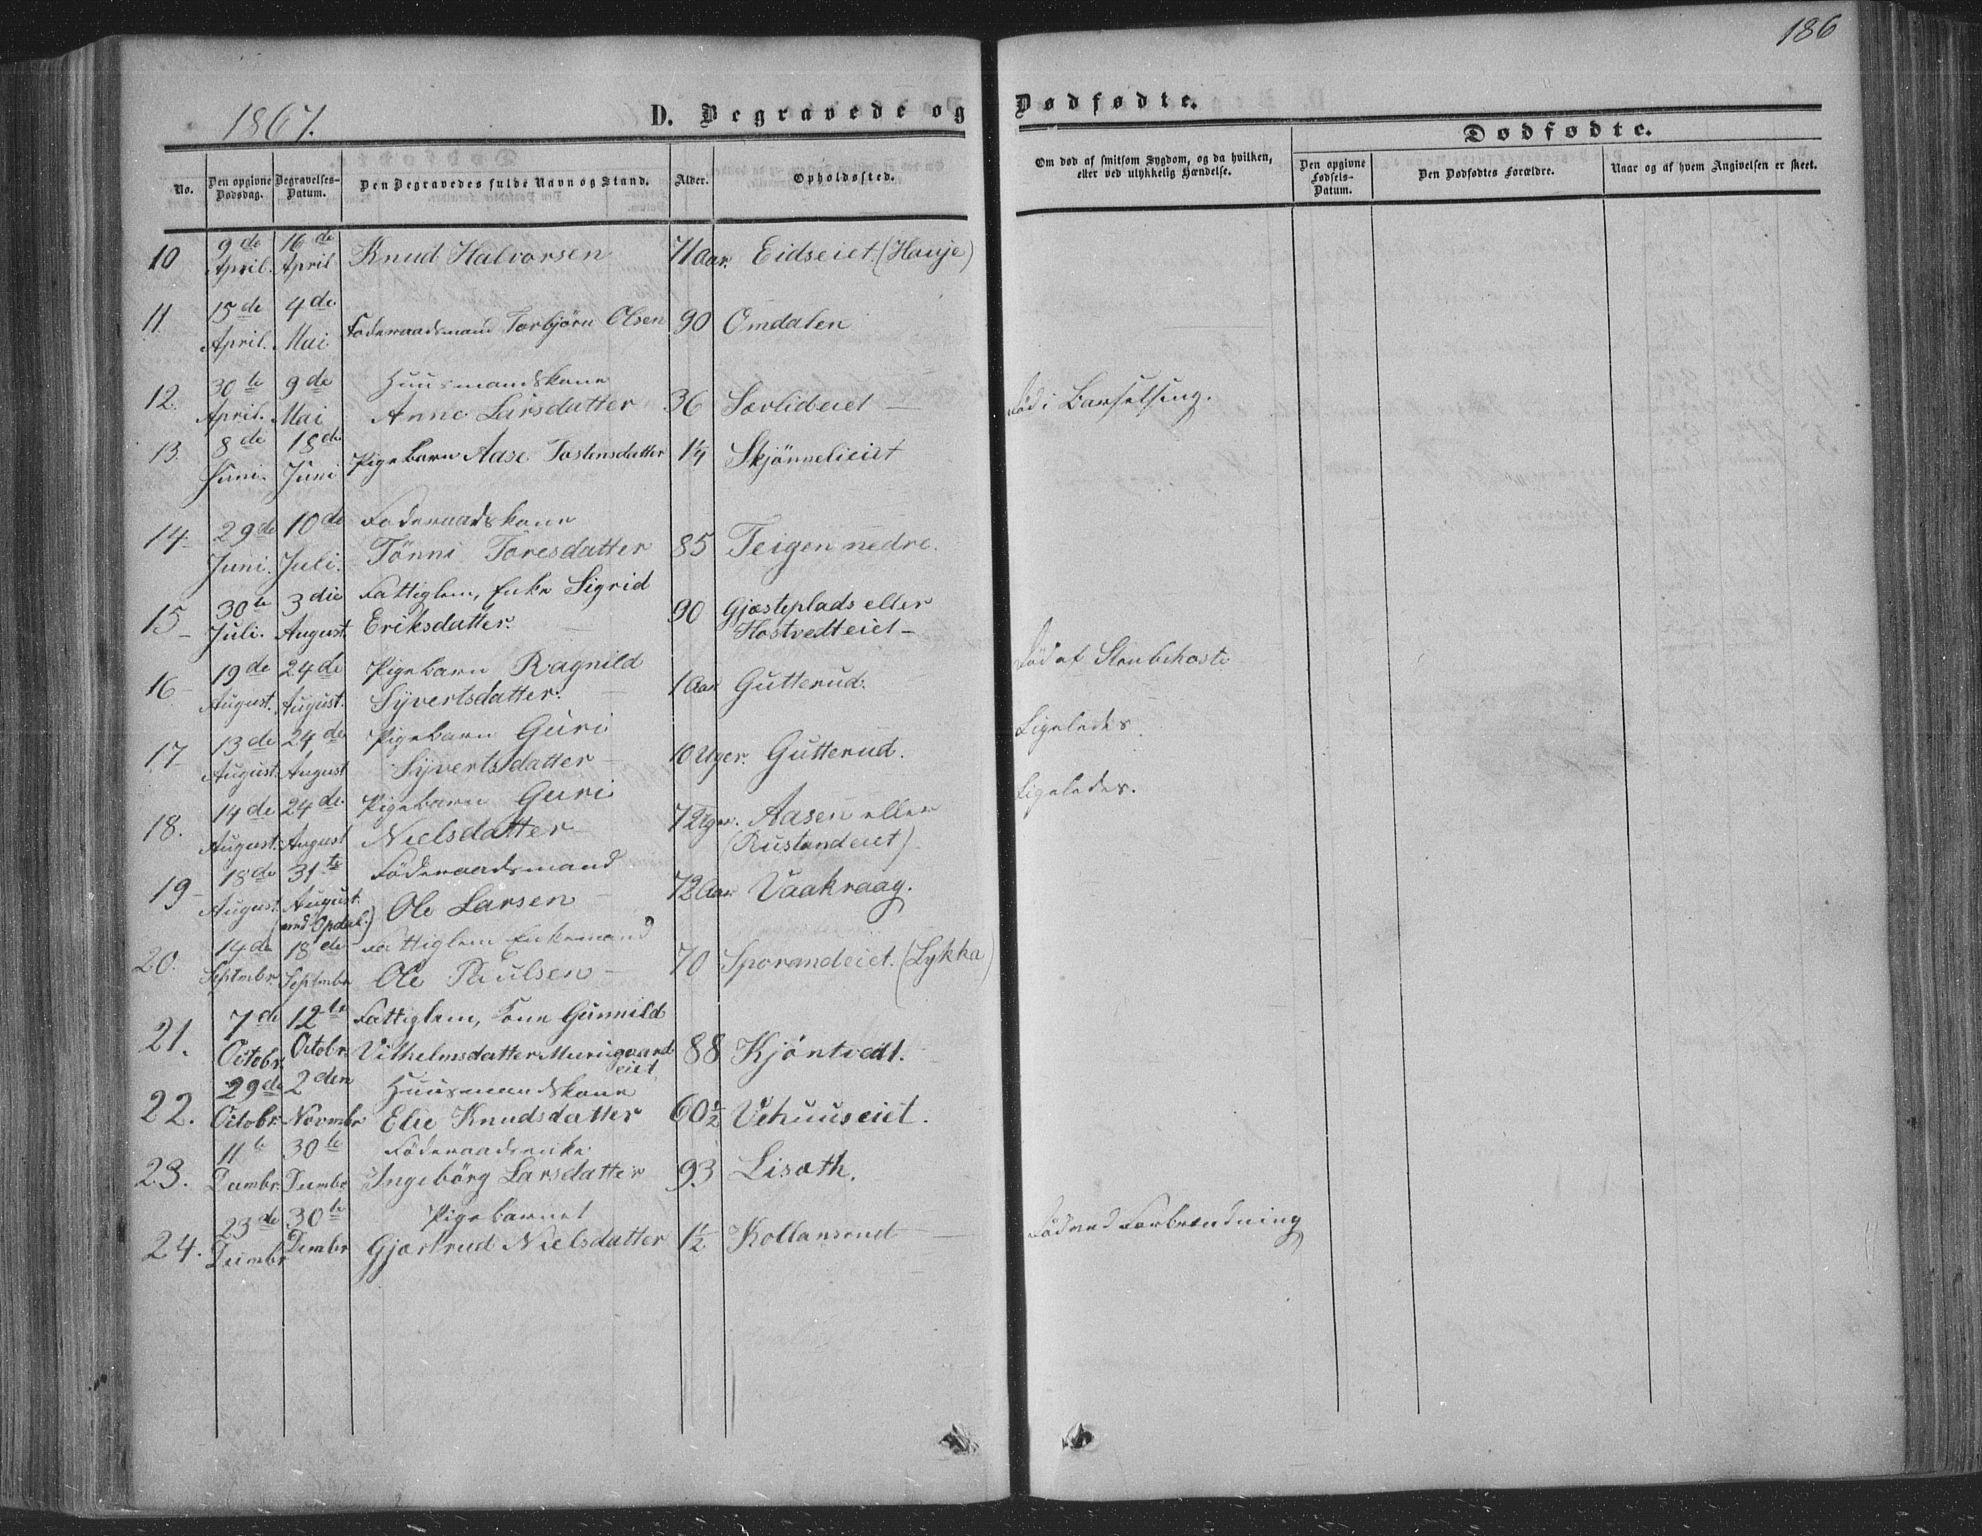 186
1867.
D. Begravede og Dødfødte.
Dødfødte.
No.
Den opgivne Dødsdag.
Begravelses-Datum.
Den Begravedes fulde Navn og Stand.
Alder.
Opholdssted.
Om død af smitsom Sygdom, og da hvilken, eller ved ulykkelig Hændelse.
Den opgivne Fødsels-Datum.
Den Dødfødtes Forældre.
Naar og af hvem Angivelsen er skeet.
10 9de April. 16de April Knud Halvorsen 71 Aar. Eidseiet. (Hauje)
11 15de April. 4de Mai Föderaadsmand Torbjörn Olsen 90 Omdalen
12. 30te April. 9de Mai Huusmandskone
Anne Larsdatter 36 Sørlideiet — Död i Barselseng.
13. 8de Juni. 18de Juni Pigebarn Aase Tostensdatter 1¼ Skjönnelieiet
14. 29de Juni. 10de Juli. Föderaadskone
Tönni Toresdatter 85 Teigen nedre.
15 30te Juli. 3die August. Fattiglem, Enke Sigrid
Eriksdatter. 90 Gjæsteplads eller
Hostvedteiet —
16 19de August. 24de August. Pigebarn Ragnild
Syvertsdatter. 1 Aar Gutterud. Död af Strubehoste
17 13de August. 24de August Pigebarn Guri
Syvertsdatter 10 Uger. Gutterud. Ligeledes.
18. 14de August. 24de August Pigebarn Guri
Nielsdatter 7 Uger. Aasen eller
(Rustandeiet). Ligeledes.
19 18de August. 31te August. (ved Opdal.) Föderaadsmand
Ole Larsen 72 Aar Vaakraag.
20. 14de Septmbr. 18de Septmbr Fattiglem Enkemand
Ole Paulsen 70 Sporandeiet. (Lykka)
21. 7de Octobr. 12te Octobr. Fattiglem, Kone Gunnild
Vilhelmsdatter Murugaard
eiet 88 Kjöntvedt.
22. 29de Octobr. 2den Novmbr Huusmandskone
Elie Knudsdatter 60½ Vehuuseiet.
23. 11te Dcmbr. 30te Dcmbr Föderaadsenke
Ingebörg Larsdatter 93 Liseth.
24. 23de Dcmbr 30te Dcmbr Pigebarnet
Gjærtrud Nielsdatter 1½ Kollansrud Död ved Forbrænding